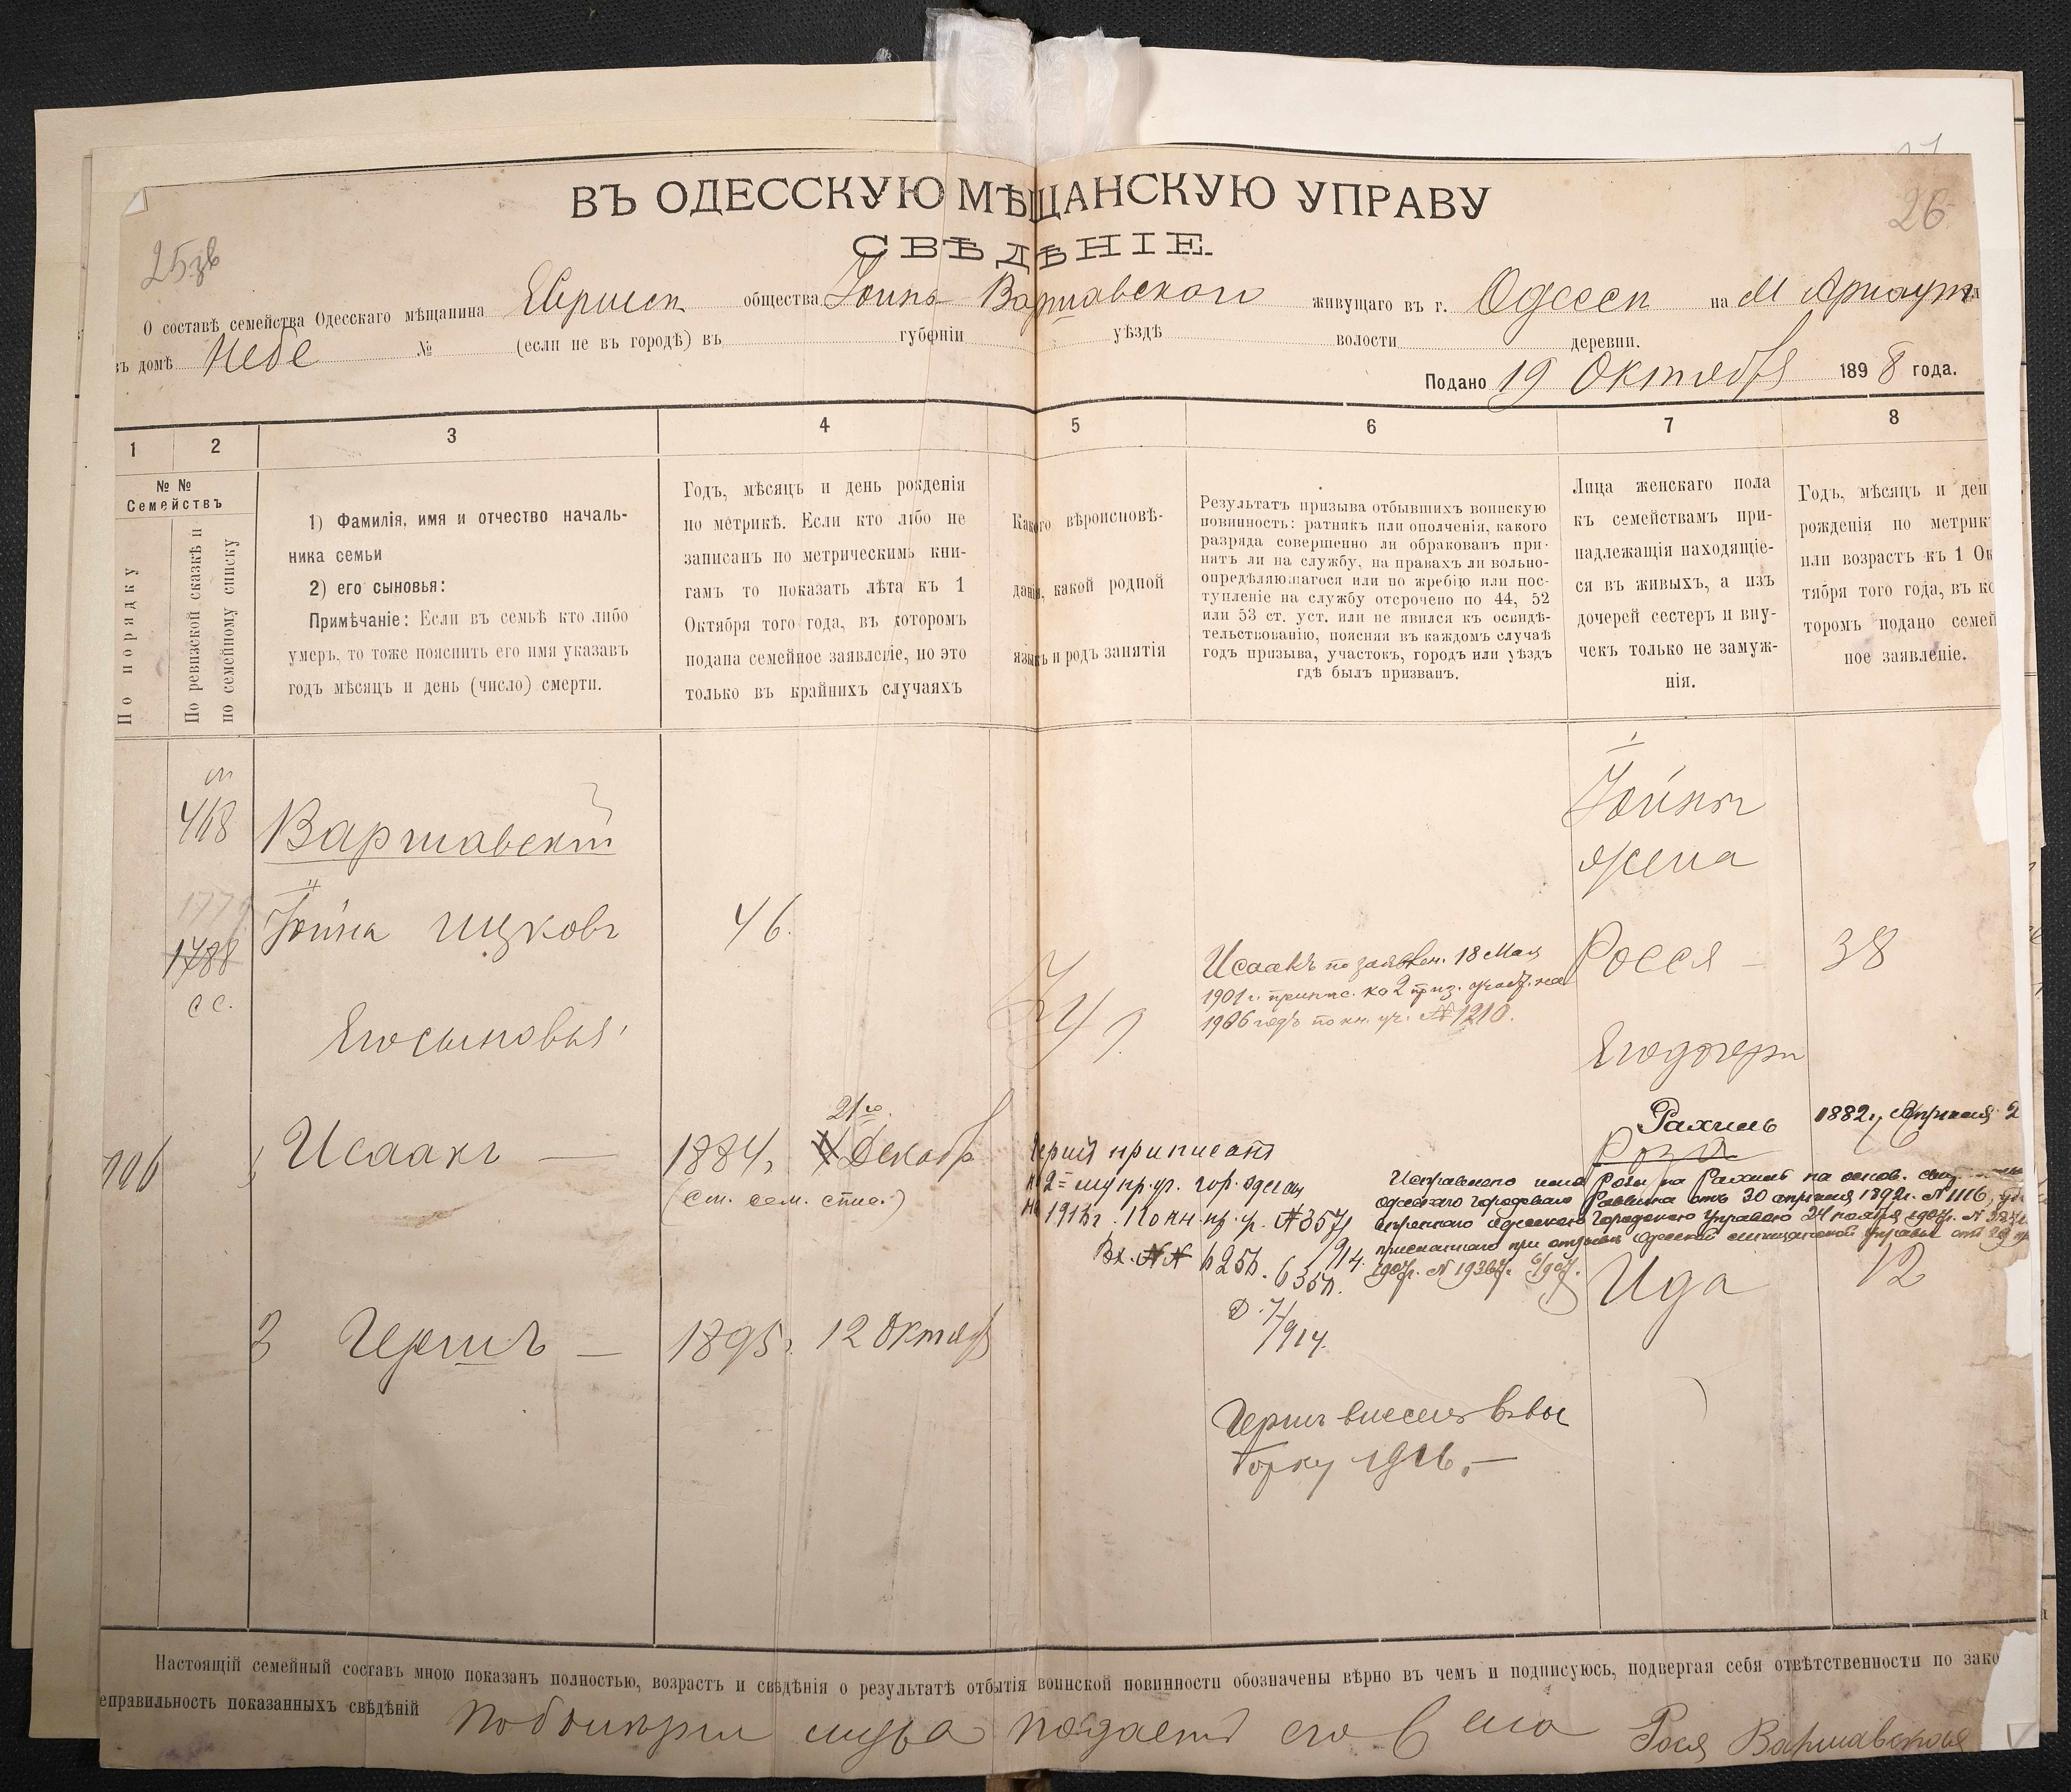 26
ВЪ ОДЕССКУЮ МѢЩАНСКУЮ УПРАВУ
СВѢДѢНІЕ.
О составѣ семейства Одесскаго мѣщанина Евриск общества Іоины Варшавскаго живущаго въ г. Одессѣ на М Арнаут
въ домѣ Небе № (если не въ городѣ) въ губерніи уѣздѣ волости деревни.
Подано 19 Октября 1898 года.
1 2 3 4 5 6 7 8
№ №
Семействъ
По порядку
По ревизской сказкѣ и
по семейному списку
1) Фамилія, имя и отчество началь-
ника семьи
2) его сыновья:
Примѣчаніе: Если въ семьѣ кто либо
умеръ, то тоже пояснить его имя указавъ
годъ мѣсяцъ и день (число) смерти.
Годъ, мѣсяцъ и день рожденія
по метрикѣ. Если кто либо не
записанъ по метрическимъ кни-
гамъ то показать лѣта къ 1
Октября того года, въ которомъ
подана семейное заявленіе, но это
только въ крайнихъ случаяхъ
Какого вѣроисповѣ-
данія, какой родной
языкъ и родъ занятія
Результатъ призыва отбывшихъ воинскую
повинность: ратникъ или ополченія, какого
разряда совершенно ли обракованъ при-
нятъ ли на службу, на правахъ ли вольно-
опредѣляющагося или по жребію или пос-
тупленіе на службу отсрочено по 44, 52
или 53 ст. уст. или не явился къ освидѣ-
тельствованію, поясняя въ каждомъ случаѣ
годъ призыва, участокъ, городъ или уѣздъ
гдѣ былъ призванъ.
Лица женскаго пола
къ семействамъ при-
надлежащія находящіе-
ся въ живыхъ, а изъ
дочерей сестеръ и вну-
чекъ только не замуж-
нія.
Годъ, мѣсяцъ и ден
рожденія по метрик
или возрастъ къ 1 Ок
тября того года, въ ко
торомъ подано семей
ное заявленіе.
468 Варшавскій
Іоины
жена
1788 Іоина Ицковъ 46.
сс.
Росся — 38
Исаакъ по заявлен. 18 Мая
1901 г. припис. ко 2 приз. участ. на
1906 годъ по кн. уч. № 1210.
Его сыновья
Его дочери
Исаакъ — 1884, 21го Декабр
(см. сем. спис.)
Рахиль 1882 г. Апрѣля 2
Роза
Герш приписанъ
2 му пр. уч. гор. Одессы
1913 г. По кн. пр. у. № 357
Вх. №№ 625 п. 635 п. 914.
Д. 7/914.
Исправлено имя Розы на Рахиль на основ.
Одесскаго городового Раввина отъ 30 апрѣля 1892 г. № 1116,
Одесскою Городскою Управою 24 ноября 1907 г.
1907 г. № 19367.
Ида 12
3 Гершъ — 1895 г. 12 Октяб
Гершъ внесенъ въ вы
борку 1916. —
Настоящій семейный составъ мною показанъ полностью, возрастъ и свѣдѣнія о результатѣ отбытія воинской повинности обозначены вѣрно въ чемъ и подписуюсь, подвергая себя отвѣтственности по зако
еправильность показанныхъ свѣдѣній подаетъ его Рося Варшавская